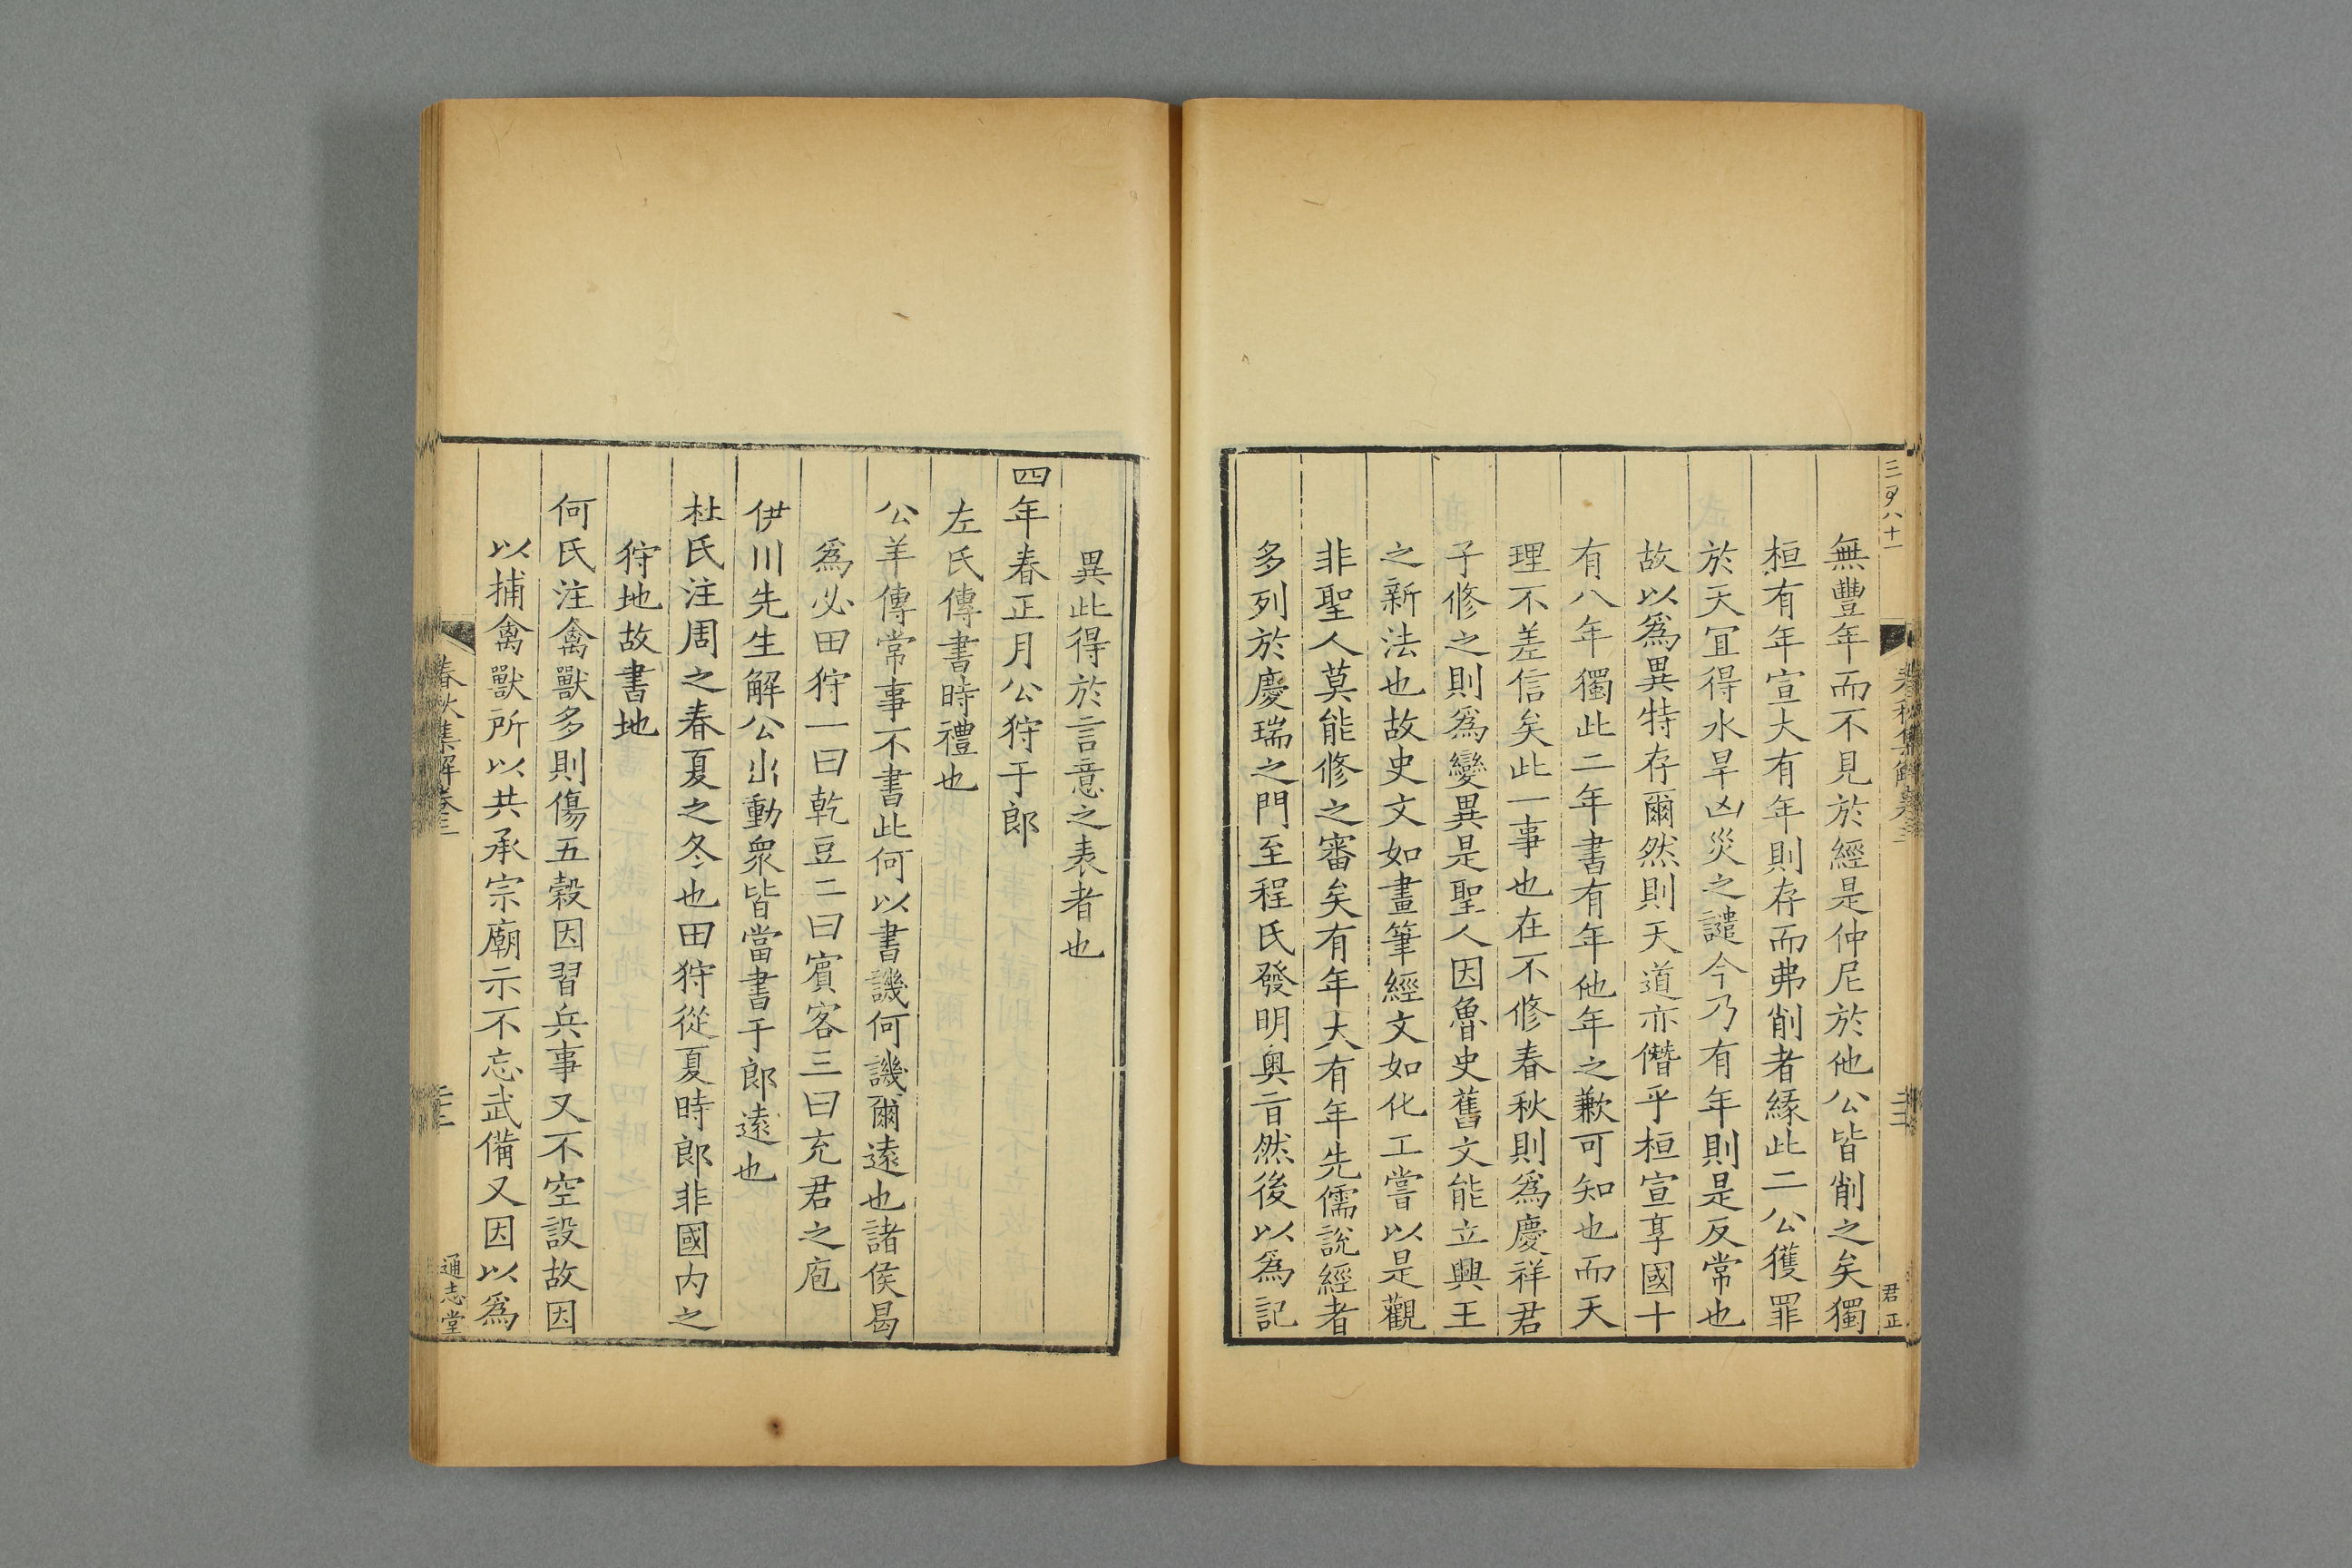 三百八十一
春秋集解卷三
君正
無豐年而不見於經是仲尼於他公皆削之矣獨
桓有年宣大有年則存而弗削者緣此二公獲罪
於天宜得水旱凶災之譴今乃有年則是反常也
故以爲異特存爾然則天道亦僭乎桓宣享國十
有八年獨此二年書有年他年之歉可知也而天
理不差信矣此一事也在不修春秋則爲慶祥君
子修之則爲變異是聖人因魯史舊文能立興王
之新法也故史文如畫筆經文如化工嘗以是觀
非聖人莫能修之審矣有年大有年先儒說經者
多列於慶瑞之門至程氏發明奧旨然後以為記
異此得於言意之表者也
四年春正月公狩于郎
左氏傳書時禮也
公羊傳常事不書此何以書譏何譏爾遠也諸侯曷
爲必田狩一曰乾豆二曰賓客三曰充君之庖
伊川先生解公出動衆皆當書于郎遠也
杜氏注周之春夏之冬也田狩從夏時郎非國內之
狩地故書地
何氏注禽獸多則傷五穀因習兵事又不空設故因
以捕禽獸所以共承宗廟示不忘武備又因以爲
春秋集解卷三
通志堂